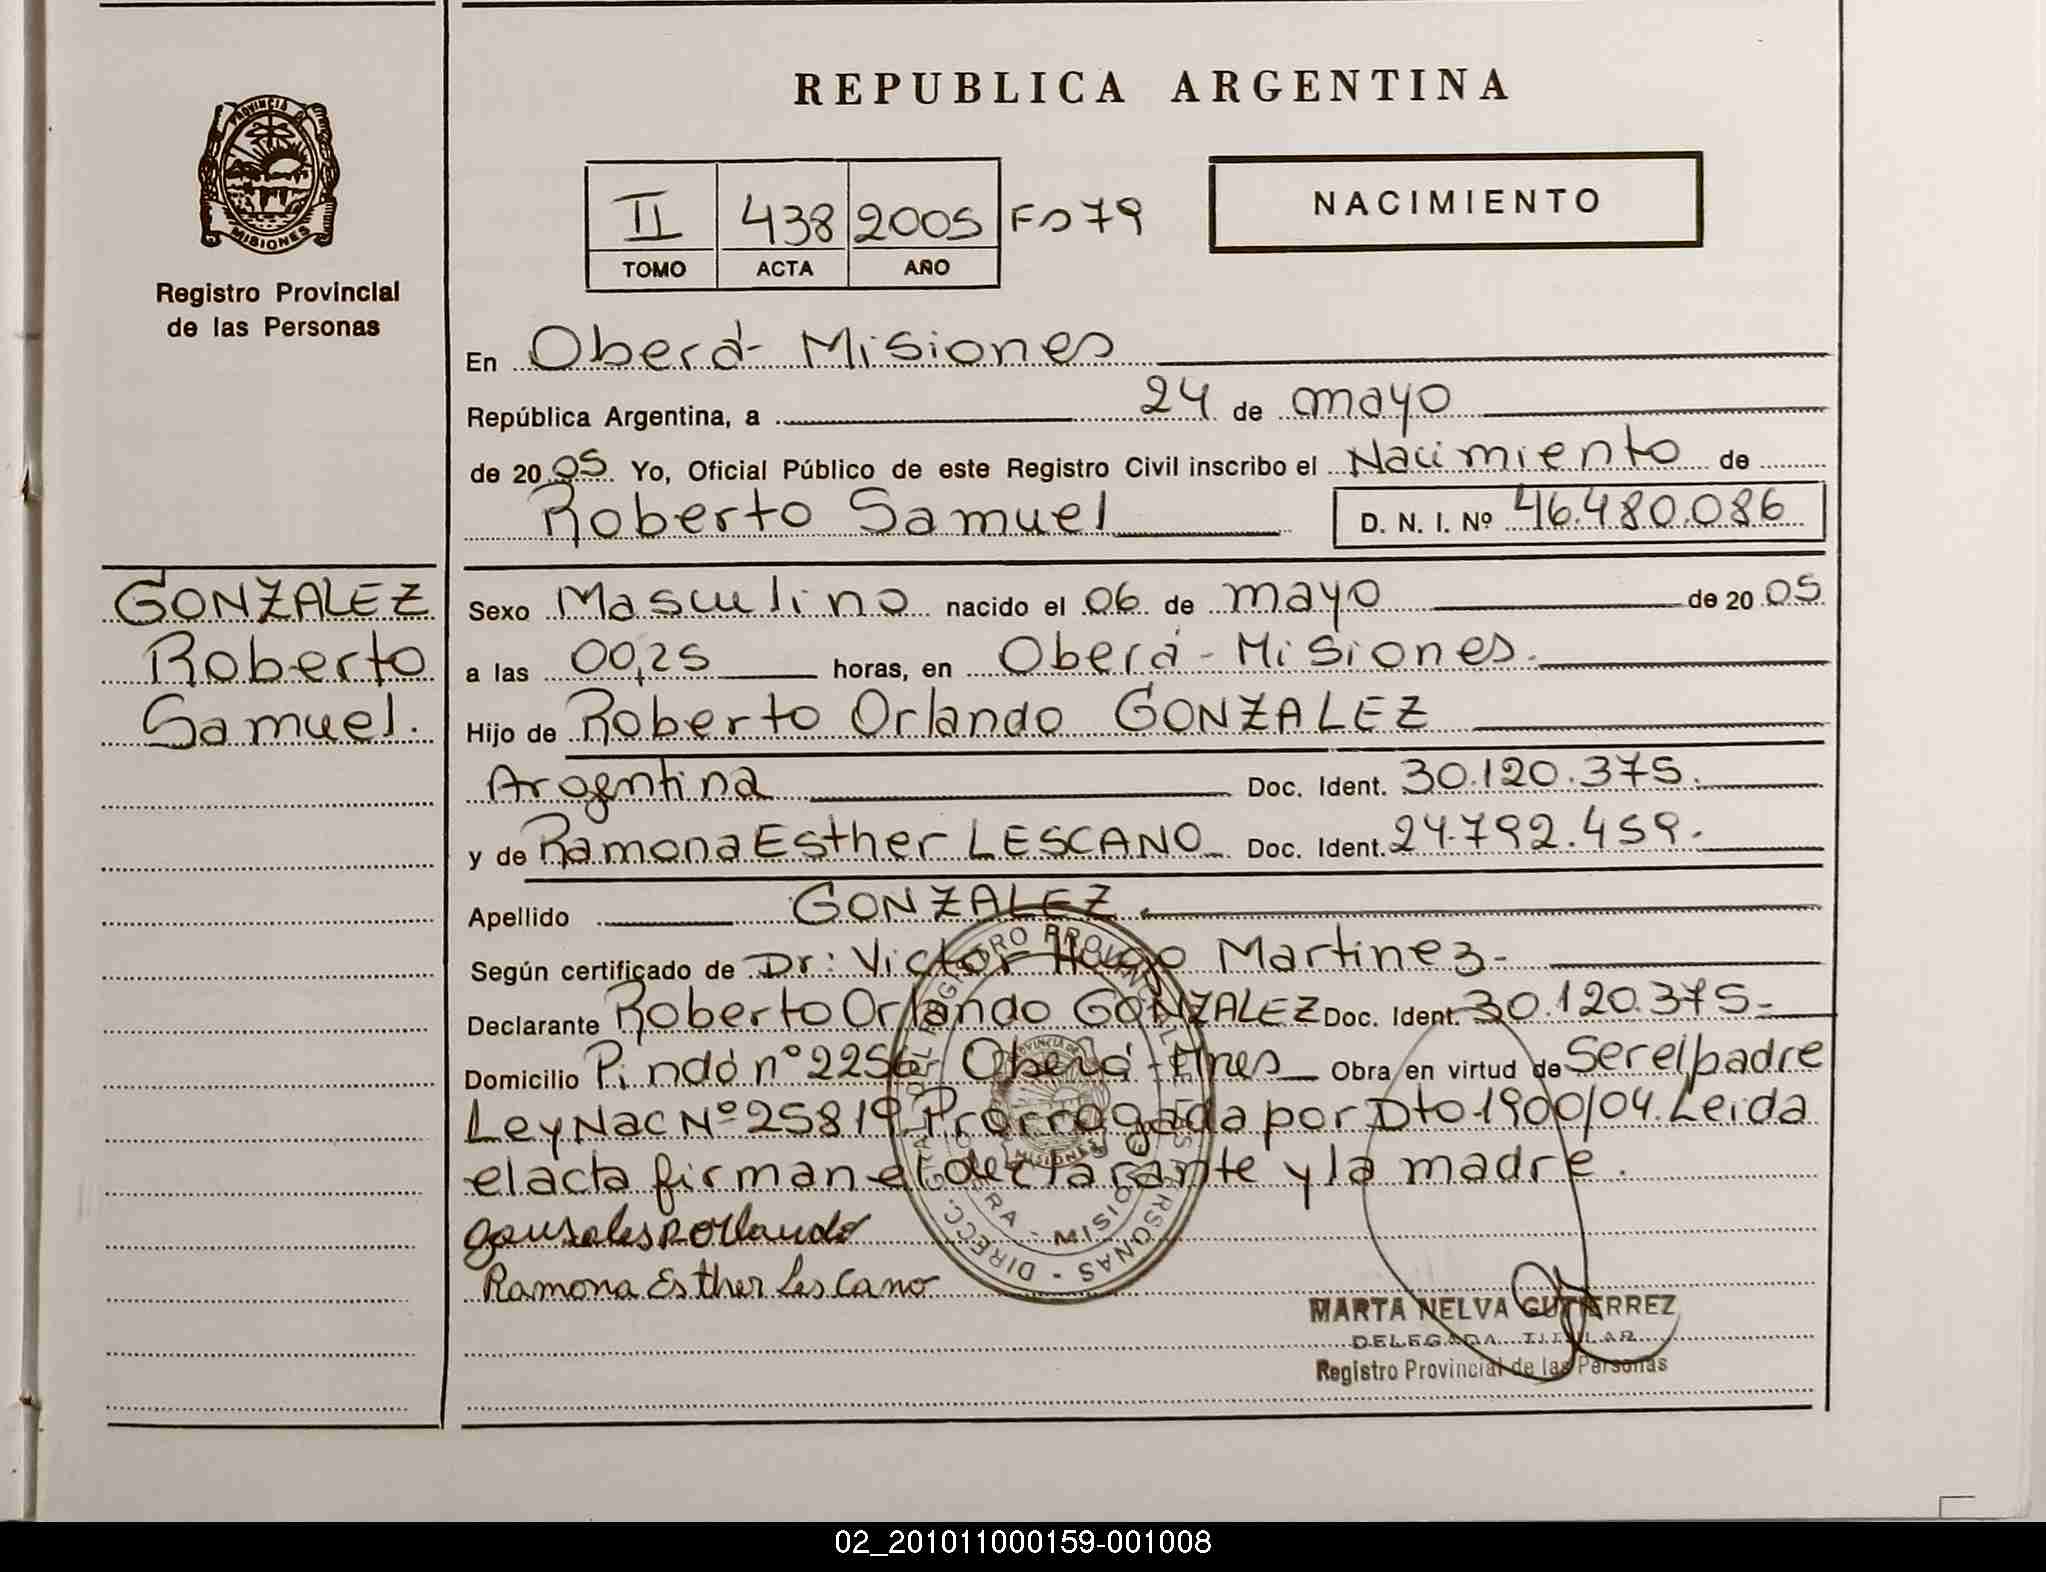 REPUBLICA ARGENTINA
PROVINCIA DE
MISIONES
Registro Provincial
de las Personas
II 438 2005 Fo 79
TOMO ACTA AÑO
NACIMIENTO
En Oberá - Misiones
República Argentina, a 24 de mayo
de 2005 Yo, Oficial Público de este Registro Civil inscribo el Nacimiento de
Roberto Samuel D. N. I. Nº 46.480.086
GONZALEZ
Roberto
Samuel.
Sexo Masculino nacido el 06 de mayo de 2005
a las 00,25 horas, en Oberá - Misiones.
Hijo de Roberto Orlando GONZALEZ
Argentina Doc. Ident. 30.120.375.
y de Ramona Esther LESCANO Doc. Ident. 24.792.459.
Apellido GONZALEZ.
Según certificado de Dr: Victor Hugo Martinez-
Declarante Roberto Orlando GONZALEZ Doc. Ident. 30.120.375-
Domicilio Pindó nº 2256- Oberá - Mnes Obra en virtud de Ser el padre
Ley Nac Nº 25819 Prorrogada por Dto 1900/04. Leida
el acta firman el declarante y la madre.
Ramona Esther Lescano
MARTA NELVA GUTIERREZ
DELEGADA TITULAR
Registro Provincial de las Personas
02_201011000159-001008